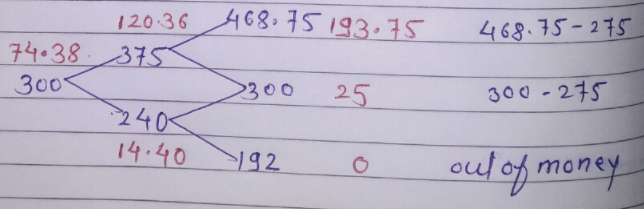 120.36 468.75 193.75 468.75-275
74.38 375
300 300 25 300-275
240
14.40 192 0 out of money